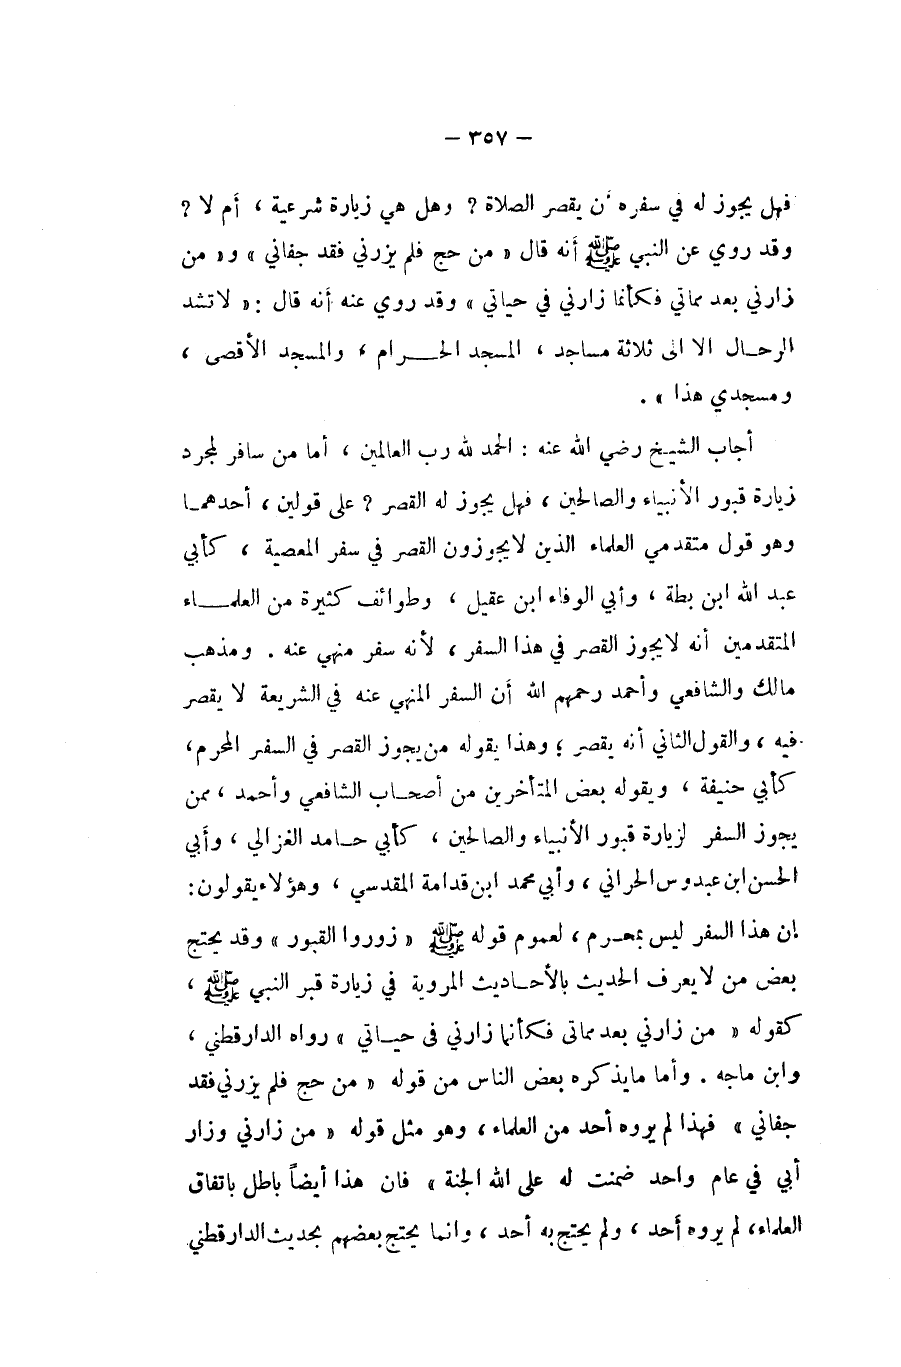 – ٣٥٧ –
فهل يجوز له في سفره أن يقصر الصلاة ؟ وهل هي زيارة شرعية ، أم لا ؟
وقد روي عن النبي ﷺ أنه قال « من حج فلم يزرني فقد جفاني » و« من
زارني بعد مماتي فكأنما زارني في حياتي » وقد روي عنه أنه قال :« لاتشد
الرحال الا الى ثلاثة مساجد ، المسجد الحرام ، والمسجد الأقصى ،
ومسجدي هذا » .
أجاب الشيخ رضي الله عنه : الحمد لله رب العالمين ، أما من سافر لمجرد
زيارة قبور الأنبياء والصالحين ، فهل يجوز له القصر ؟ على قولين ، أحدهما
وهو قول متقدمي العلماء الذين لايجوزون القصر في سفر المعصية ، كأبي
عبد الله ابن بطة ، وأبي الوفاء ابن عقيل ، وطوائف كثيرة من العلماء
المتقدمين أنه لايجوز القصر في هذا السفر ، لأنه سفر منهي عنه . ومذهب
مالك والشافعي وأحمد رحمهم الله أن السفر المنهي عنه في الشريعة لا يقصر
فيه ، والقول الثاني أنه يقصر ؛ وهذا يقوله من يجوز القصر في السفر المحرم،
كأبي حنيفة ، ويقوله بعض المتأخرين من أصحاب الشافعي وأحمد ، ممن
يجوز السفر لزيارة قبور الأنبياء والصالحين ، كأبي حامد الغزالي ، وأبي
الحسن ابن عبدوس الحراني ، وأبي محمد ابن قدامة المقدسي ، وهؤلاء يقولون:
إن هذا السفر ليس بمحرم ، لعموم قوله ﷺ « زوروا القبور » وقد يحتج
بعض من لايعرف الحديث بالأحاديث المروية في زيارة قبر النبي ﷺ ،
كقوله « من زارني بعد مماتي فكأنما زارني في حياتي » رواه الدارقطني ،
وابن ماجه . وأما مايذكره بعض الناس من قوله « من حج فلم يزرني فقد
جفاني » فهذا لم يروه أحد من العلماء ، وهو مثل قوله « من زارني وزار
أبي في عام واحد ضمنت له على الله الجنة » فان هذا أيضاً باطل باتفاق
العلماء، لم يروه أحد ، ولم يحتج به أحد ، وانما يحتج بعضهم بحديث الدارقطني